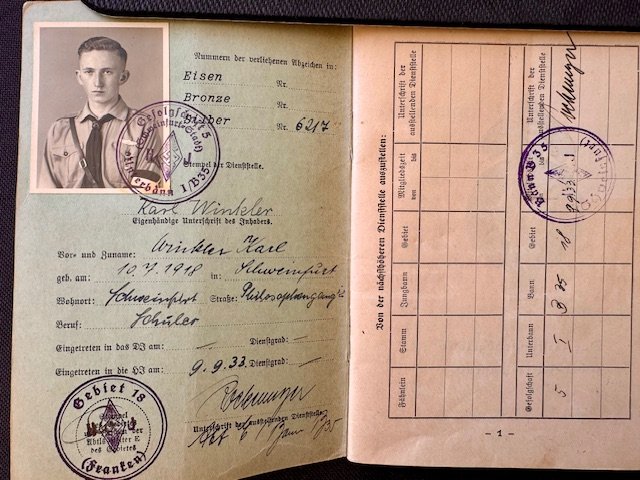 Nummern der verliehenen Abzeichen in:
Eisen Nr.
Bronze Nr.
Silber Nr. 6217
Gefolgschaft 5
(Schweinfurt-Stadt)
I/B35
Stempel der Dienststelle.
Karl Winkler
Eigenhändige Unterschrift des Inhabers.
Vor- und Zuname: Winkler Karl
geb. am: 10.7.1918 in: Schweinfurt
Wohnort: Schweinfurt Straße: Philosophengang
Beruf: Schüler
Eingetreten in das DJ am: — Dienstgrad: —
Eingetreten in die HJ am: 9.9.33 Dienstgrad: —
Unterschrift der ausstellenden Dienststelle
Gebiet 18
Stempel
des Gebietes
(Franken)
Von der nächsthöheren Dienststelle auszustellen:
Fähnlein
Stamm
Jungbann
Gebiet
Mitgliedszeit von bis
Unterschrift der ausstellenden Dienststelle
Gefolgschaft 5
Unterbann I
Bann B 35
Gebiet 18
bis
9.9.33
Unterschrift der ausstellenden Dienststelle
Bann B 35
- 1 -